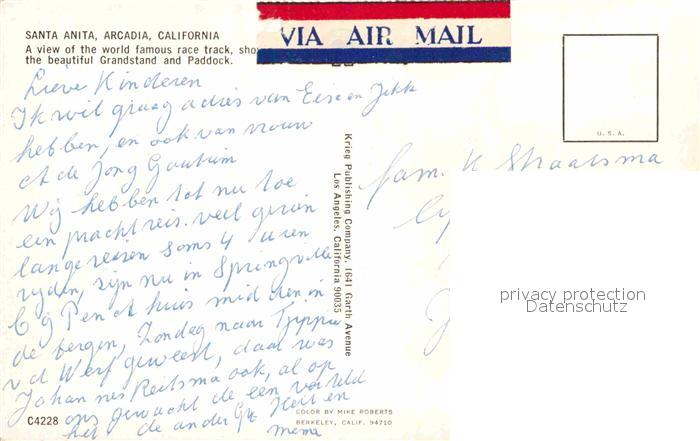 SANTA ANITA, ARCADIA, CALIFORNIA
A view of the world famous race track, sho
the beautiful Grandstand and Paddock.
VIA AIR MAIL
U.S.A.
Lieve Kinderen
Ik wil graag adres van Eise en Jekk
hebben, en ook van vrouw
de Jong Gautum
Wij hebben tot nu toe
een pracht reis. veel gezien
lange reizen soms 4 uren
ryden, zijn nu in Springville
Pen huis midden in
de bergen, Zondag naar
v d Werf geweest, daar was
Johannes Reitsma ook, al op
ons gewacht de een verteld
het de ander Gr. Heit en
mema
Fam. K Straatsma
Krieg Publishing Company, 1641 Garth Avenue
Los Angeles, California 90035
privacy protection
Datenschutz
C4228
COLOR BY MIKE ROBERTS
BERKELEY, CALIF. 94710